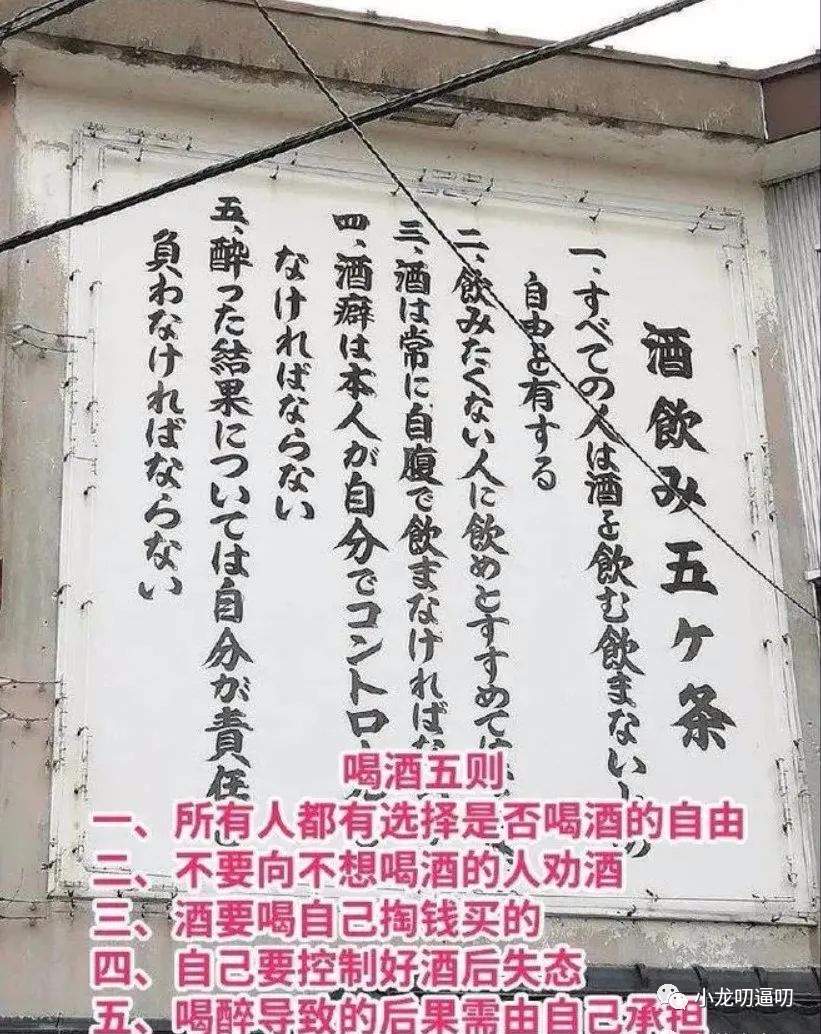 酒飲み五ケ条
一、すべての人は酒を飲む飲まない
自由を有する
二、飲みたくない人に飲めとすすめては
三、酒は常に自腹で飲まなければ
四、酒癖は本人が自分でコントロー
なければならない
五、酔った結果については自分が責任
負わなければならない
喝酒五则
一、所有人都有选择是否喝酒的自由
二、不要向不想喝酒的人劝酒
三、酒要喝自己掏钱买的
四、自己要控制好酒后失态
五、喝醉导致的后果需由自己承担
小龙叨逼叨